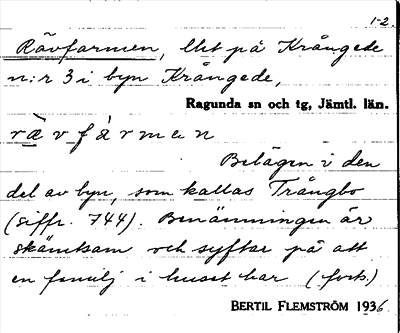 1-2.
Rävfarmen, lht på Krångede
n:r 3 i byn Krångede,
Ragunda sn och tg, Jämtl. län.
rä̀vfàrmen
Belägen i den
del av byn, som kallas Trångbo
(siffr. 744). Benämningen är
skämtsam och syftar på att
en familj i huset har (forts.)
BERTIL FLEMSTRÖM 1936